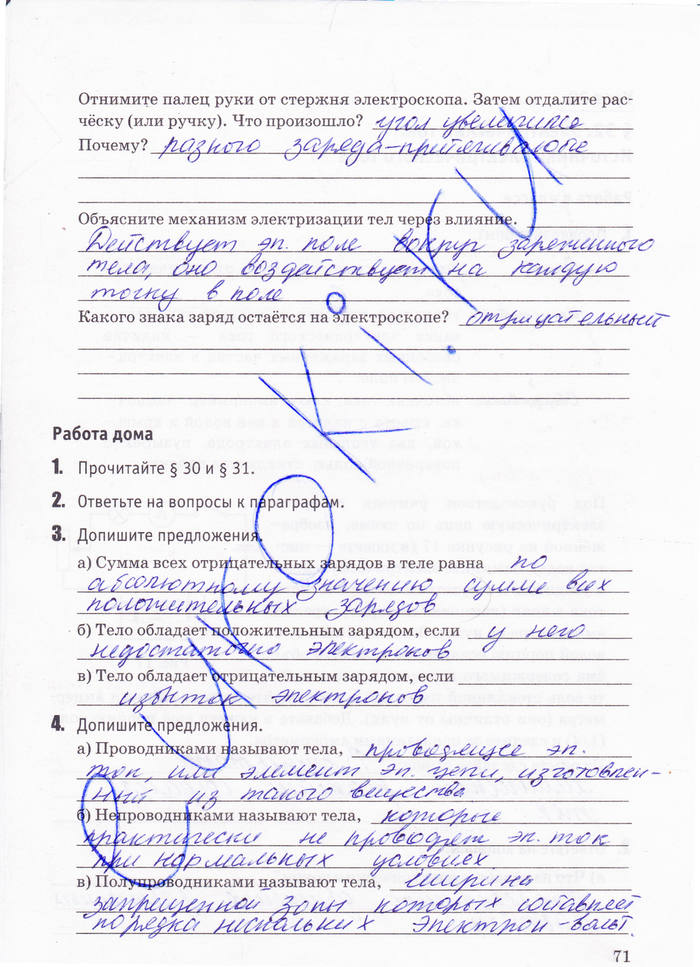 Отнимите палец руки от стержня электроскопа. Затем отдалите рас-
чёску (или ручку). Что произошло? угол увеличился
Почему? разного заряда-притягивание
Объясните механизм электризации тел через влияние.
Действует эл. поле вокруг заряженного
тела, оно воздействует на каждую
точку в поле
Какого знака заряд остаётся на электроскопе? отрицательный
Работа дома
1. Прочитайте § 30 и § 31.
2. Ответьте на вопросы к параграфам.
3. Допишите предложения.
а) Сумма всех отрицательных зарядов в теле равна по
абсолютному значению сумме всех
положительных зарядов
б) Тело обладает положительным зарядом, если у него
недостаточно электронов
в) Тело обладает отрицательным зарядом, если
избыток электронов
4. Допишите предложения.
а) Проводниками называют тела, проводящие эл.
ток, или элемент эл. цепи, изготовлен-
ный из такого вещества
б) Непроводниками называют тела, которые
практически не проводят эл. ток
при нормальных условиях.
в) Полупроводниками называют тела, ширина
запрещенной зоны которых составляет
порядка нескольких электрон-вольт.
71